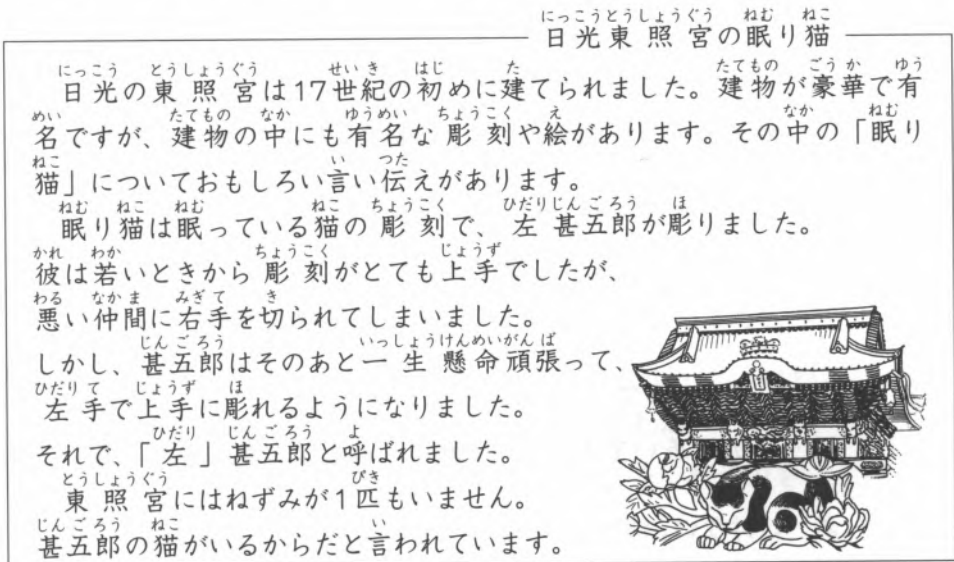 日光東照宮の眠り猫
日光の東照宮は17世紀の初めに建てられました。建物が豪華で有
名ですが、建物の中にも有名な彫刻や絵があります。その中の「眠り
猫」についておもしろい言い伝えがあります。
眠り猫は眠っている猫の彫刻で、左甚五郎が彫りました。
彼は若いときから彫刻がとても上手でしたが、
悪い仲間に右手を切られてしまいました。
しかし、甚五郎はそのあと一生懸命頑張って、
左手で上手に彫れるようになりました。
それで、「左」甚五郎と呼ばれました。
東照宮にはねずみが1匹もいません。
甚五郎の猫がいるからだと言われています。